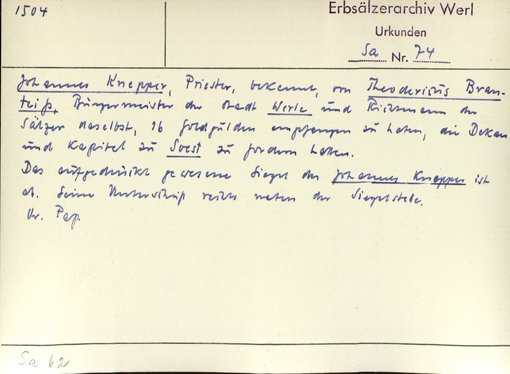 1504
Erbsälzerarchiv Werl
Urkunden
Sa Nr. 74
Johannes Knepper, Priester, bekennt, von Theodericus Bran-
teiß, Bürgermeister der Stadt Werle und Richtmann der
Sälzer daselbst, 16 Goldgulden empfangen zu haben, die Dekan
und Kapitel zu Soest zu fordern hatten.
Das aufgedrückt gewesene Siegel des Johannes Knepper ist
ab. Seine Unterschrift rechts neben der Siegelstelle.
Or. Pap.
Sa 62